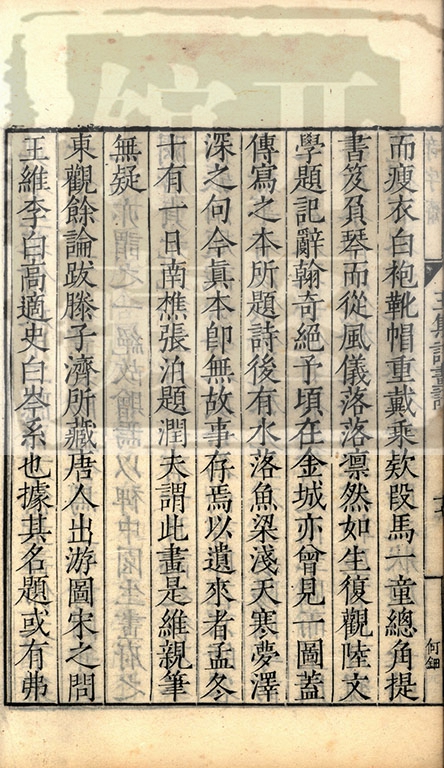 而瘦衣白袍靴帽重戴乘款段馬一童總角提
書笈負琴而從風儀落落凛然如生復觀陸文
學題記辭翰奇絕予頃在金城亦曾見一圖蓋
傳寫之本所題詩後有水落魚梁淺天寒夢澤
深之句今真本即無故事存焉以遺來者孟冬
十有一日南樵張洎題潤夫謂此畫是維親筆
無疑
東觀餘論跋滕子濟所藏唐人出游圖宋之問
王維李白高適史白岑系也據其名題或有弗